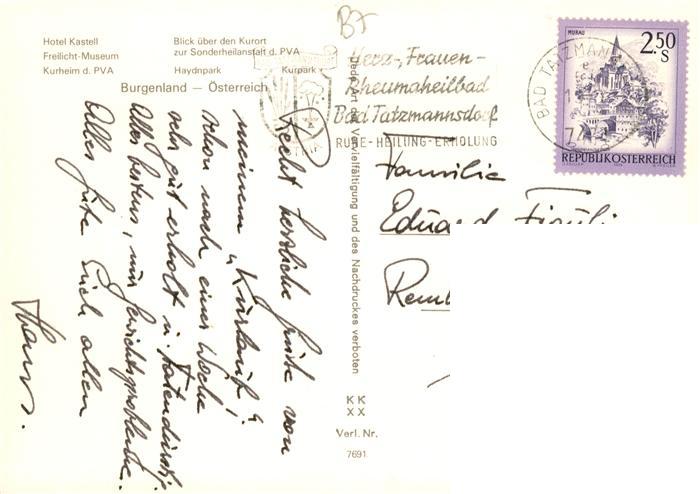 B7
Hotel Kastell
Freilicht-Museum
Kurheim d. PVA
Blick über den Kurort
zur Sonderheilanstalt d. PVA
Haydnpark Kurpark
Burgenland — Österreich
Herz-, Frauen-
Rheumaheilbad
Bad Tatzmannsdorf
RUHE-HEILUNG-ERHOLUNG
BAD TATZMAN
MURAU
2.50
S
REPUBLIK ÖSTERREICH
Jede Art der Vervielfältigung und des Nachdruckes verboten
Recht herzliche Grüße von
meinem „Kurlaub"!
Schon nach einer Woche
sehr gut erholt u. tatendurstig.
Alles bestens, nur Gewichtsprobleme.
Alles Gute Euch allen
Hans.
Familie
Eduard
KK
XX
Verl. Nr.
7691